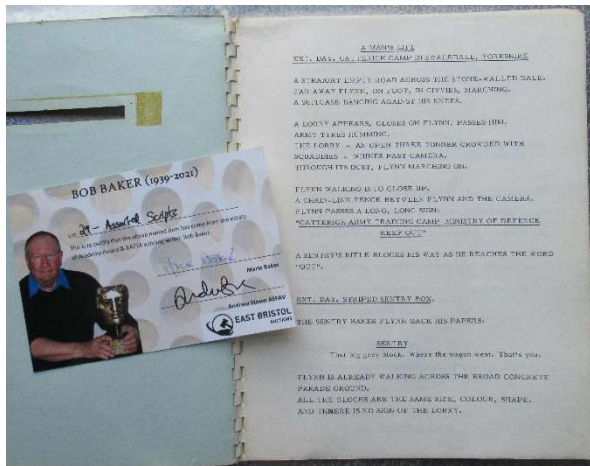 BOB BAKER (1939-2021)
Lot 29 - Assorted Scripts
This is to certify that the above named item has come from the estate
of Academy Award & BAFTA winning writer Bob Baker.
Marie Baker
Andrew Stowe ASFAV
EAST BRISTOL
AUCTIONS
A MAN'S LIFE
EXT. DAY. CATTERICK CAMP IN SWALEDALE, YORKSHIRE
A STRAIGHT EMPTY ROAD ACROSS THE STONE-WALLED DALE.
FAR AWAY FLYNN, ON FOOT, IN CIVVIES, MARCHING.
A SUITCASE BANGING AGAINST HIS KNEES.
A LORRY APPEARS, CLOSES ON FLYNN, PASSES HIM.
ARMY TYRES HUMMING.
THE LORRY - AN OPEN THREE TONNER CROWDED WITH
SQUADDIES - WHINES PAST CAMERA.
THROUGH ITS DUST, FLYNN MARCHING ON.
FLYNN WALKING INTO CLOSE UP.
A CHAIN-LINK FENCE BETWEEN FLYNN AND THE CAMERA.
FLYNN PASSES A LONG, LONG SIGN:
"CATTERICK ARMY TRAINING CAMP MINISTRY OF DEFENCE
KEEP OUT"
A SENTRY'S RIFLE BLOCKS HIS WAY AS HE REACHES THE WORD
"OUT".
EXT. DAY. STRIPED SENTRY BOX.
THE SENTRY HANDS FLYNN BACK HIS PAPERS.
SENTRY
That big grey block. Where the wagon went. That's you.
FLYNN IS ALREADY WALKING ACROSS THE BROAD CONCRETE
PARADE GROUND.
ALL THE BLOCKS ARE THE SAME SIZE, COLOUR, SHAPE.
AND THERE IS NO SIGN OF THE LORRY.